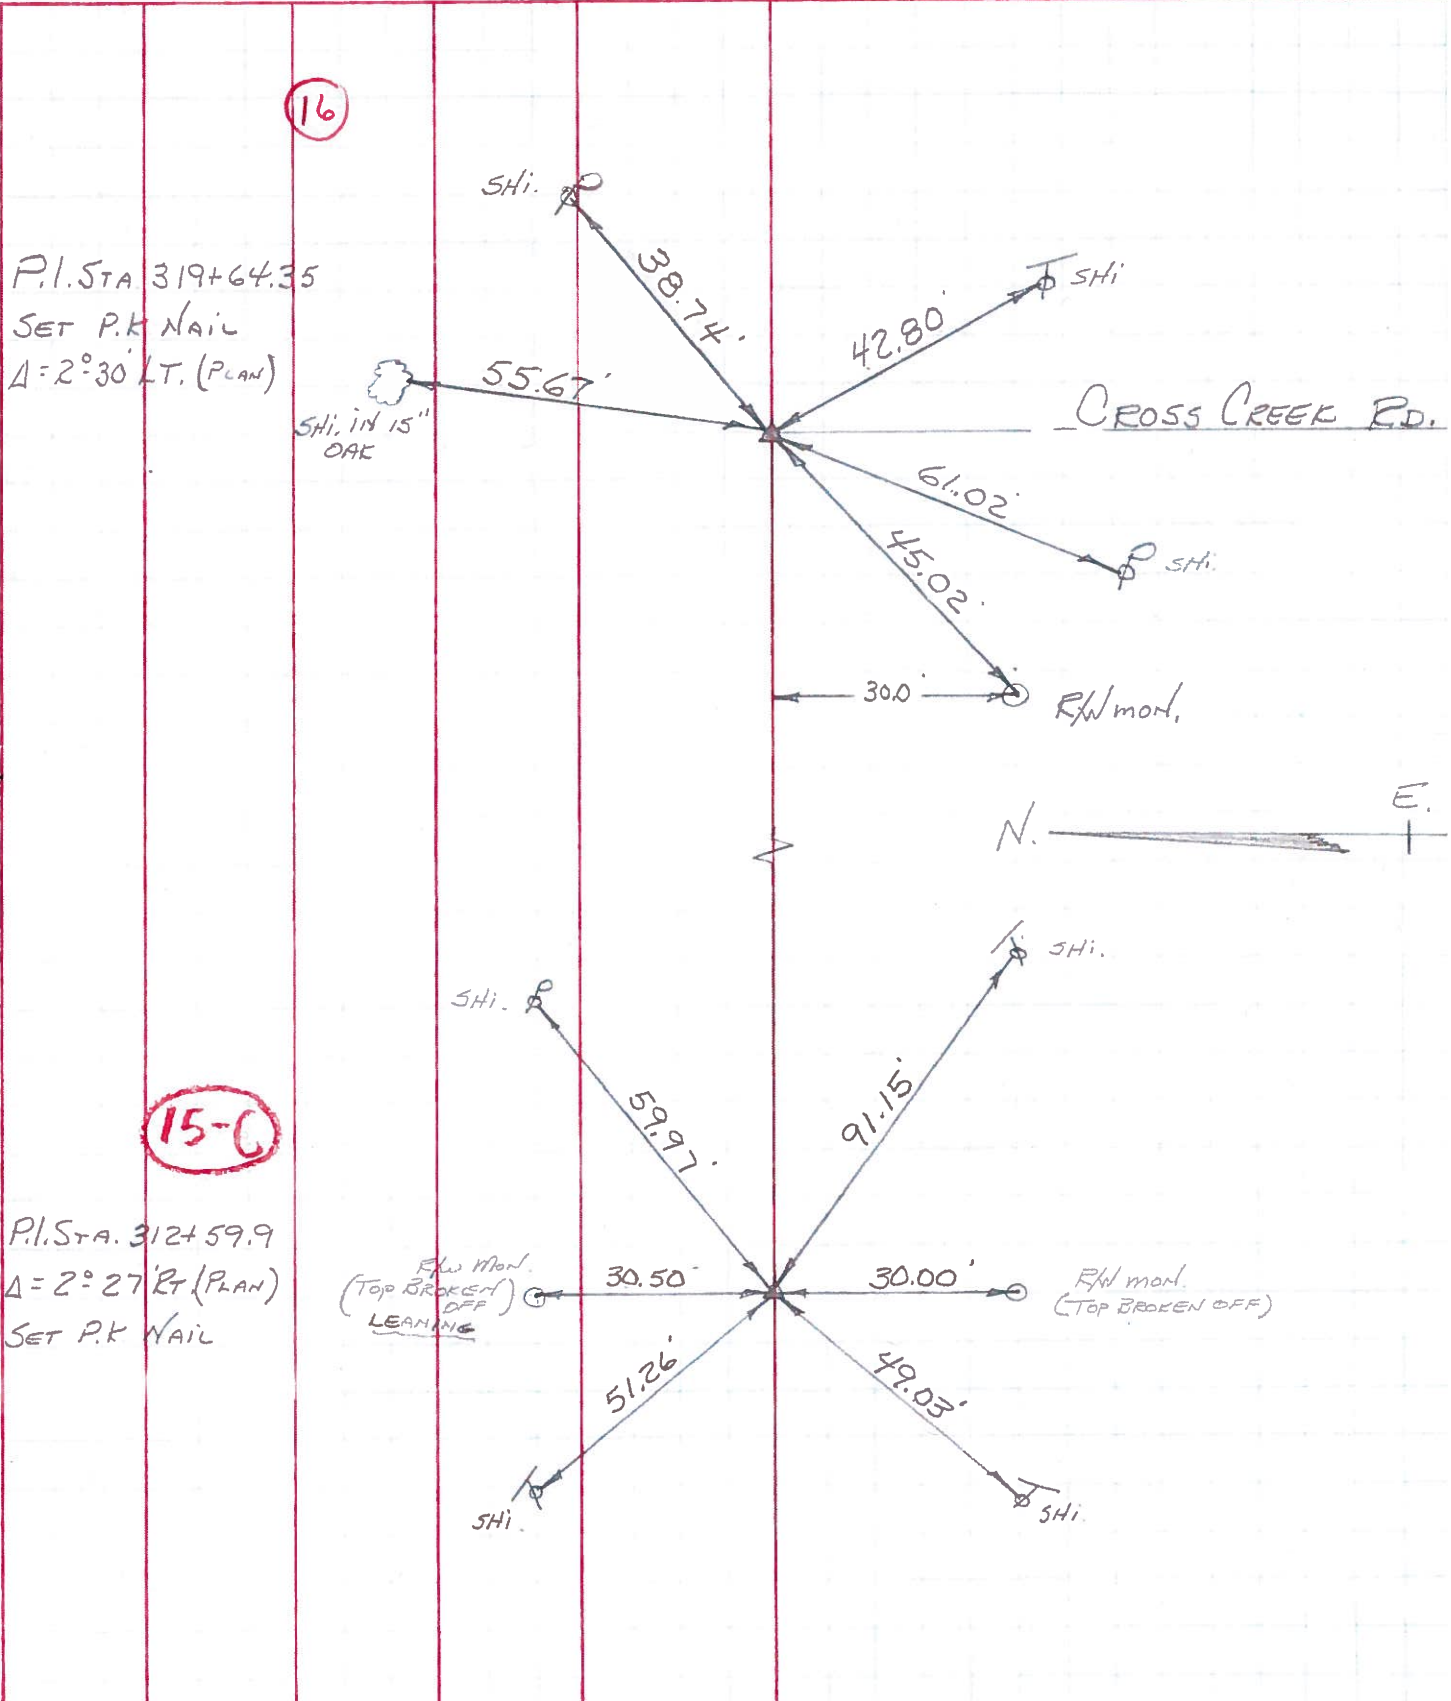 16
SHi.
38.74'
SHi
42.80'
P.I. STA 319+64.35
SET P.K NAIL
Δ=2°30' LT. (PLAN)
55.67'
SHi. IN 15"
OAK
CROSS CREEK RD.
61.02'
SHi.
45.02'
30.0'
R/W MON.
N.
E.
SHi.
SHi.
59.97'
91.15'
15-C
P.I. STA. 312+59.9
Δ=2°27' RT (PLAN)
SET P.K NAIL
R/W MON.
(TOP BROKEN)
OFF
LEANING
30.50'
30.00'
R/W MON.
(TOP BROKEN OFF)
51.26'
49.03'
SHi.
SHi.